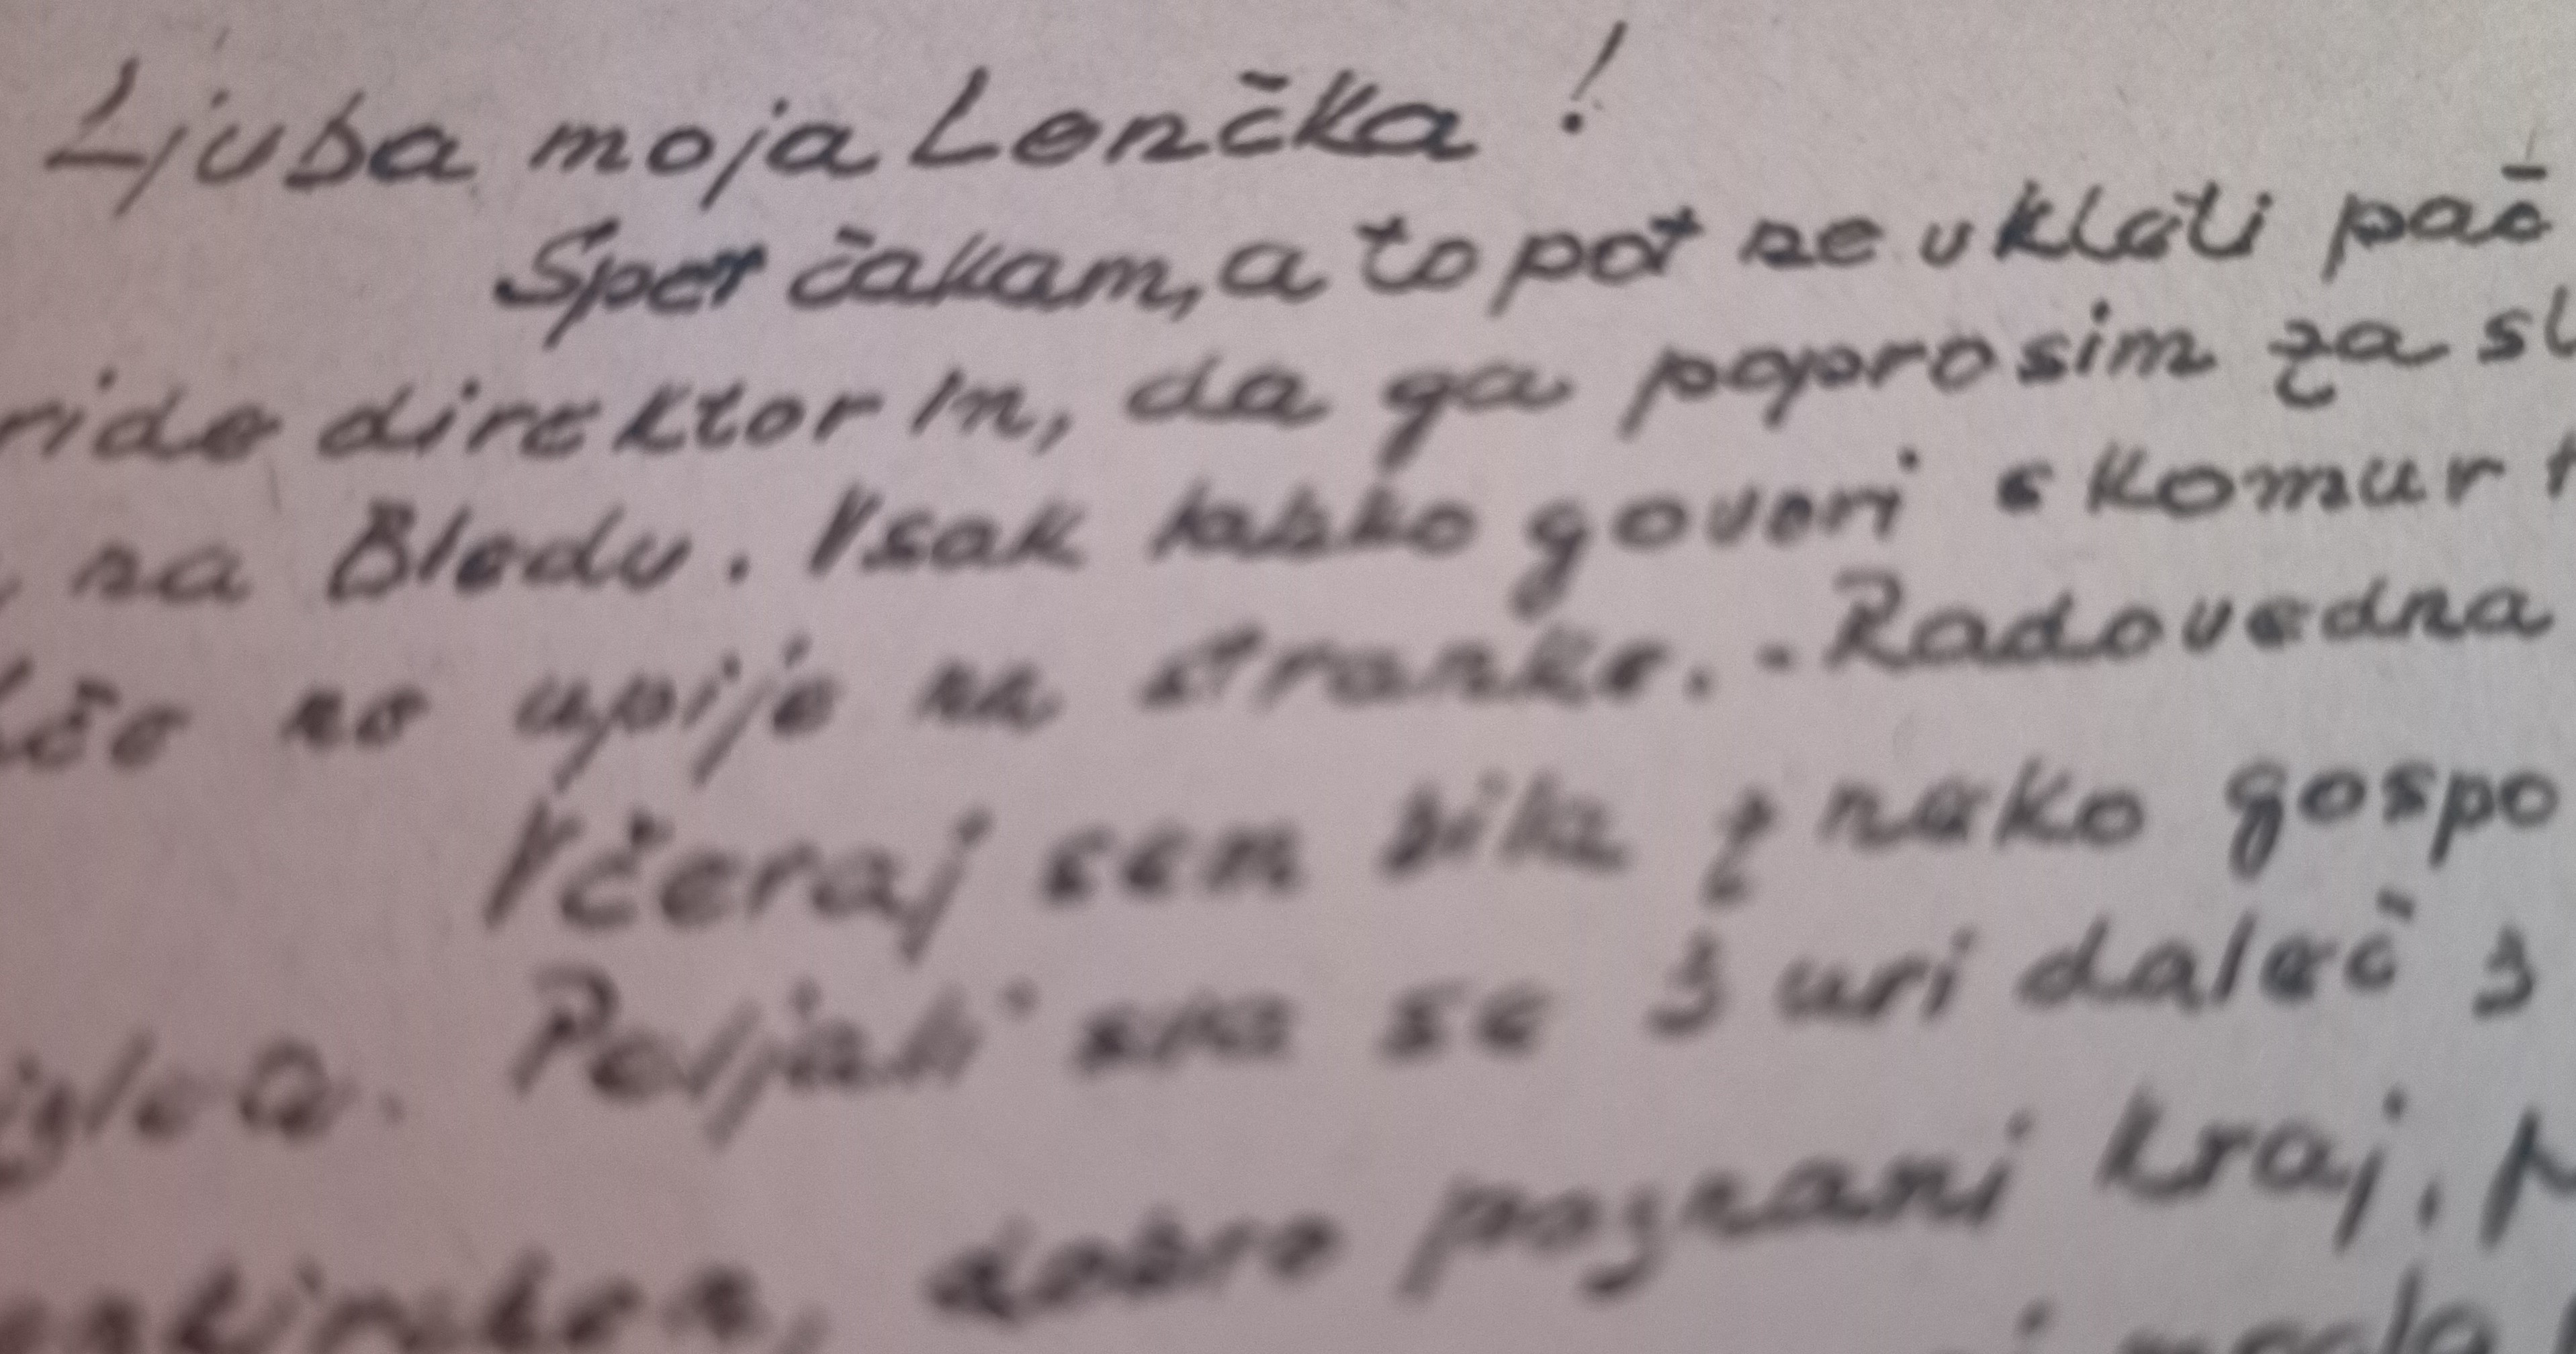 Ljuba moja Lenčka!
Spet čakam, a to pot ne v kleti pač
ride direktor In, da ga poprosim za sl
na Bledu. Vsak lahko govori s komur
ne upije na stranke. - Radovedna
Včeraj sem bila z neko gospo
Peljali smo se 3 uri daleč
dobro poznani kraj,